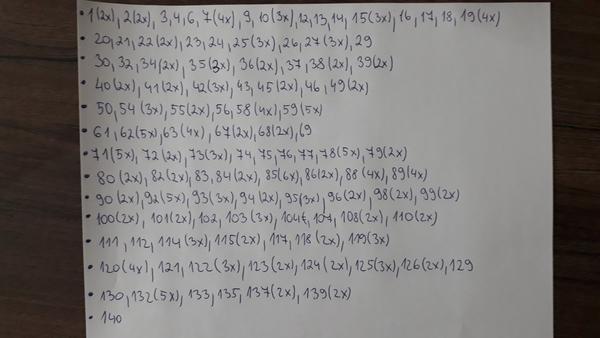 • 1(2x), 2(2x), 3, 4, 6, 7(4x), 9, 10(3x), 12, 13, 14, 15(3x), 16, 17, 18, 19(4x)
• 20, 21, 22(2x), 23, 24, 25(3x), 26, 27(3x), 29
• 30, 32, 34(2x), 35(2x), 36(2x), 37, 38(2x), 39(2x)
• 40(2x), 41(2x), 42(3x), 43, 45(2x), 46, 49(2x)
• 50, 54(3x), 55(2x), 56, 58(4x), 59(5x)
• 61, 62(5x), 63(4x), 67(2x), 68(2x), 69
• 71(5x), 72(2x), 73(3x), 74, 75, 76, 77, 78(5x), 79(2x)
• 80(2x), 82(2x), 83, 84(2x), 85(6x), 86(2x), 88(4x), 89(4x)
• 90(2x), 92(5x), 93(3x), 94(2x), 95(3x), 96(2x), 98(2x), 99(2x)
• 100(2x), 101(2x), 102, 103(3x), 104, 107, 108(2x), 110(2x)
• 111, 112, 114(3x), 115(2x), 117, 118(2x), 119(3x)
• 120(4x), 121, 122(3x), 123(2x), 124(2x), 125(3x), 126(2x), 129
• 130, 132(5x), 133, 135, 137(2x), 139(2x)
• 140